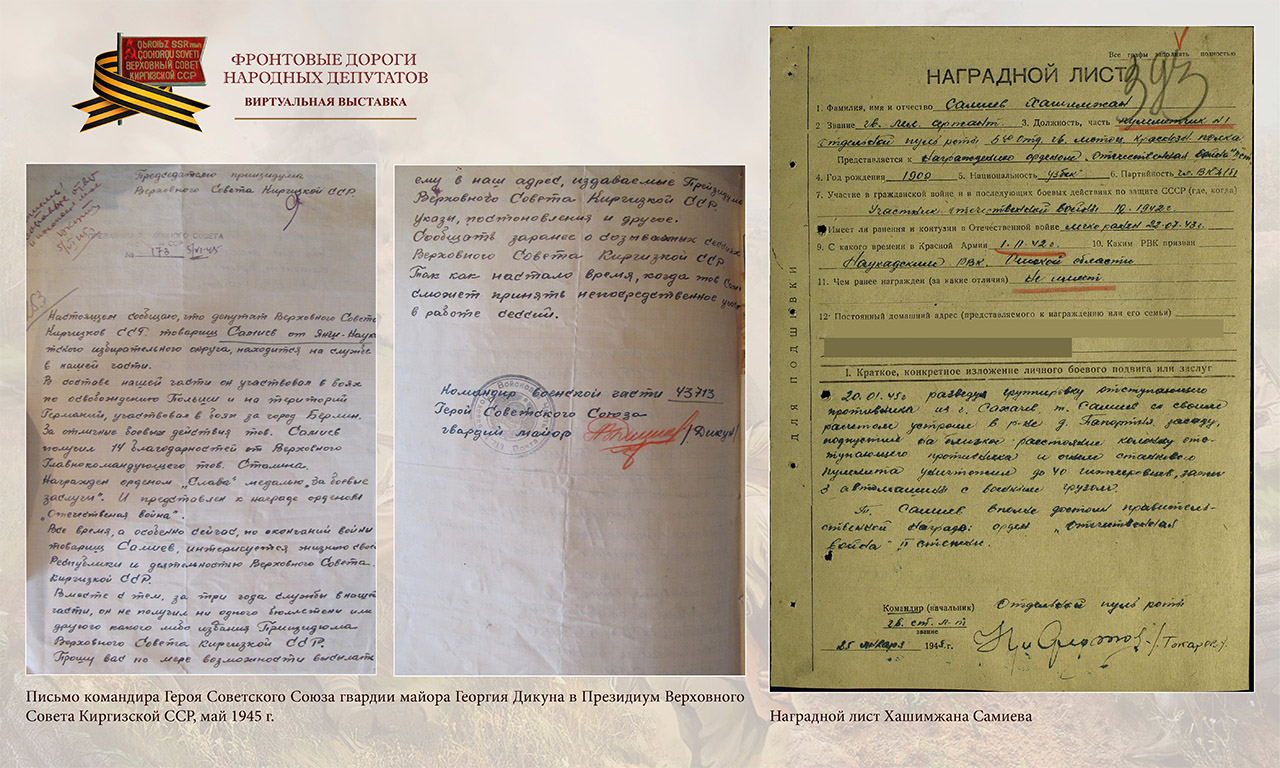 ВЕРХОВНЫЙ СОВЕТ
КИРГИЗСКОЙ ССР
ФРОНТОВЫЕ ДОРОГИ
НАРОДНЫХ ДЕПУТАТОВ
ВИРТУАЛЬНАЯ ВЫСТАВКА
Председателю принцидума
Верховного Совета Киргизкой ССР.
№ 173
Настоящем сообщаю, что депутат Верховного Совета
Киргизков ССР товарищ Самиев от Янги-Наук
тского избирательного округа, находится на службе
в нашей части.
В составе нашей части он участвовал в боях
по освобождению Польши и на територий
Германий, участвовал в боях за город Берлин.
За отличные боевых действия тов. Самиев
получил 14 благодарностей от Верховного
Главнокомандующего тов. Сталина.
Награжден орденом „Слава" медалью „За боевые
заслуги". И представлен к награде орденом
„Отечественая война".
Все время, а особенно сейчас, по окончаний войны
товарищ Самиев, интерисуется жизнию свое
Республики и деятельностью Верховного Совета
Киргизкой ССР.
Вместе с тем, за три года службы в нашей
части, он не получил ни одного бюллетени или
другого какого либо издания Принцидюма
Верховного Совета Киргизкой ССР.
Прошу вас по мере возможности высылать
ему в наш адрес, издаваемые Презідиум
Верховного Совета Киргизкой ССР
указы, постоновления и другое.
Сообщать заранее о созываемых сессиях
Верховного Совета Киргизкой ССР
Так как настало время, когда тов Сам
сможет принять непосредственное уча
в работе сессий.
Командир воинской части 43713
Герой Советского Союза
гвардий майор /Дикун/
Письмо командира Героя Советского Союза гвардии майора Георгия Дикуна в Президиум Верховного
Совета Киргизской ССР, май 1945 г.
Все графы заполнять полностью
НАГРАДНОЙ ЛИСТ
393
1. Фамилия, имя и отчество Самиев Хашимжан
2. Звание гв. мл. сержант 3. Должность, часть пулеметчик N1
Отдельной пуль роты гв. мотом. Краснозн. полка
Представляется к награждению орденом „Отечественная война" II ст
4. Год рождения 1909 5. Национальность узбек 6. Партийность чл. ВКП(б)
7. Участие в гражданской войне и в последующих боевых действиях по защите СССР (где, когда)
Участник отечественной войны 1942 г.
Имеет ли ранения и контузии в Отечественной войне легко ранен 22.07.43 г.
9. С какого времени в Красной Армии 1.11.42 г. 10. Каким РВК призван
Наукадским РВК. Ошской области
11. Чем ранее награжден (за какие отличия) Не имеет
12. Постоянный домашний адрес (представляемого к награждению или его семьи)
ДЛЯ ПОДШИВКИ
I. Краткое, конкретное изложение личного боевого подвига или заслуг
20.01.45г разведуя группировку отступающего
противника из г. Сахачев т. Самиев со своим
расчетом устроил в р-не д. засаду,
подпустив на близкое расстояние колонну отс-
тупающего противника и огнем станкового
пулемета уничтожил до 40 гитлеровцев,
3 автомашины с военным грузом.
Т. Самиев вполне достоин правитель-
ственной награды: орден „Отечественная
война" II степени.
Командир (начальник) Отдельной пуль роты
гв. ст. л-т
звание
25 января 1945 г. /Токарев/
Наградной лист Хашимжана Самиева